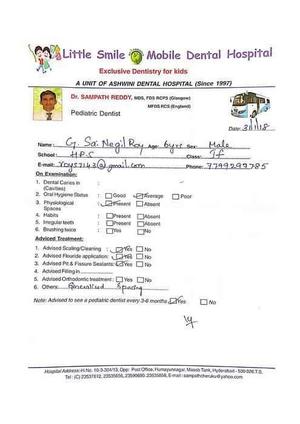 Little Smile Mobile Dental Hospital
Exclusive Dentistry for kids
A UNIT OF ASHWINI DENTAL HOSPITAL (Since 1997)
Dr. SAMPATH REDDY, MDS, FDS RCPS (Glasgow)
MFDS RCS (England)
Pediatric Dentist
Date: 3/1/18
Name: G. Sai Negil Roy Age: 6yrs Sex: Male
School: H.P.S Class: If
E-mail: @gmail.com Phone: 7799299785
On Examination:
1. Dental Caries in
(Cavities)
2. Oral Hygiene Status : Good Average Poor
3. Physiological : Present Absent
Spaces
4. Habits : Present Absent
5. Irregular teeth : Present Absent
6. Brushing twice : Yes No
Advised Treatment:
1. Advised Scaling/Cleaning : Yes No
2. Advised Flouride application: Yes No
3. Advised Pit & Fissure Sealants: Yes No
4. Advised Filling in
5. Advised Orthodontic Treatment: Yes No
6. Others: Generalised Spacing
Note: Advised to see a pediatric dentist every 3-6 months Yes No
Hospital Address: H.No. 10-3-304/13, Opp: Post Office, Humayunnagar, Masab Tank, Hyderabad - 500 028.T.S.
Tel : (C) 23537612, 23535656, 23590690, 23535858, E-mail : sampathcheruku@yahoo.com